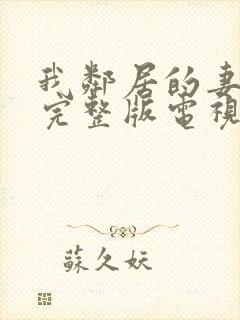 我鄰居的妻
完整版電視
蘇久妖